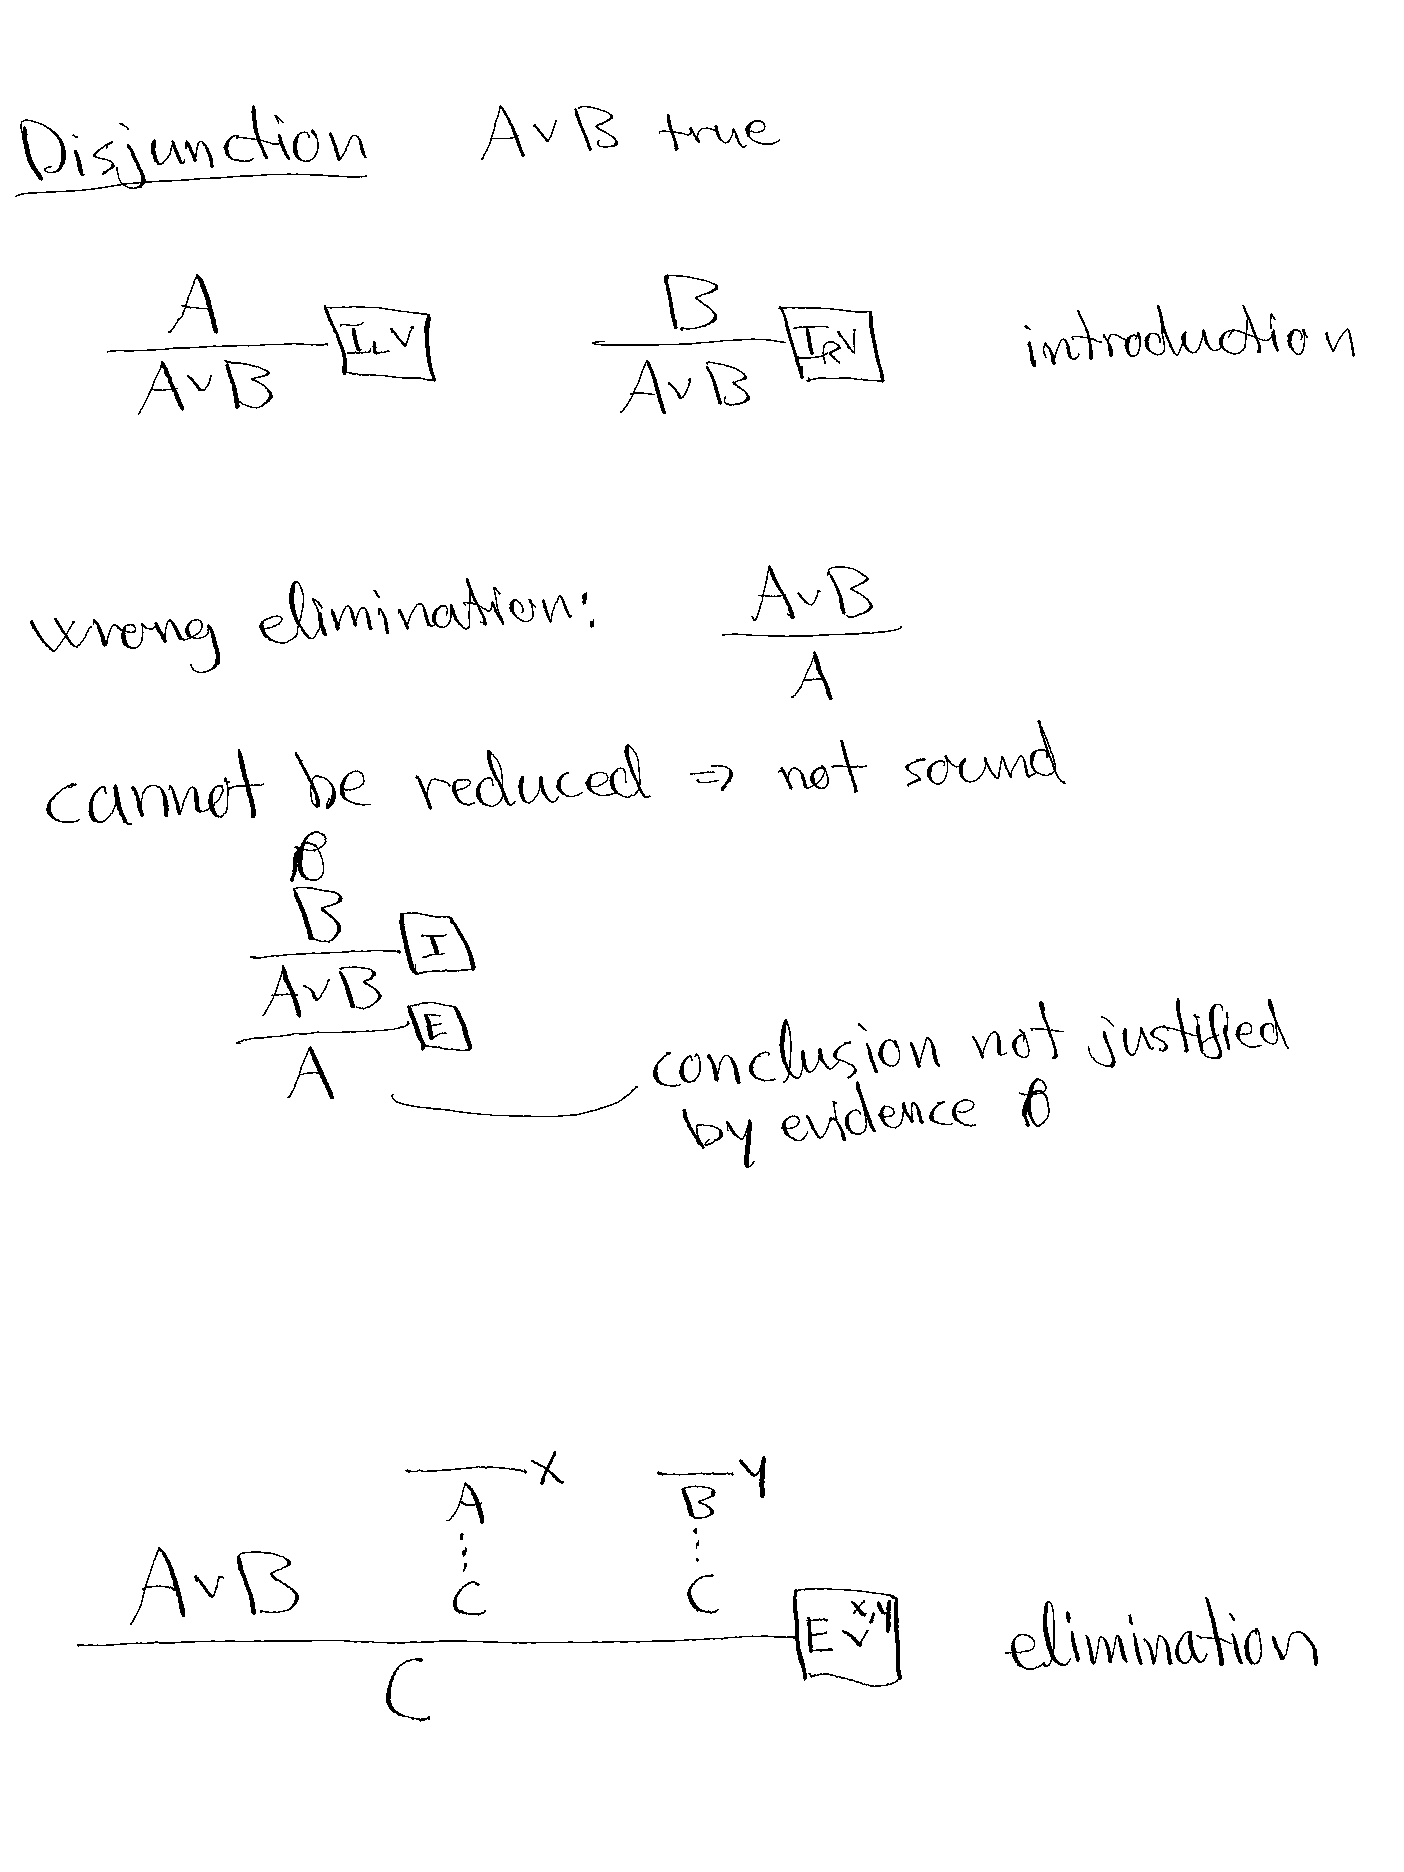 Disjunction A∨B true
A B
I_L∨ I_R∨ introduction
A∨B A∨B
wrong elimination: A∨B
A
cannot be reduced ⇒ not sound
B
I
A∨B
E
A
conclusion not justified
by evidence
x y
A B
⋮ ⋮
A∨B C C
E∨^{x,y} elimination
C